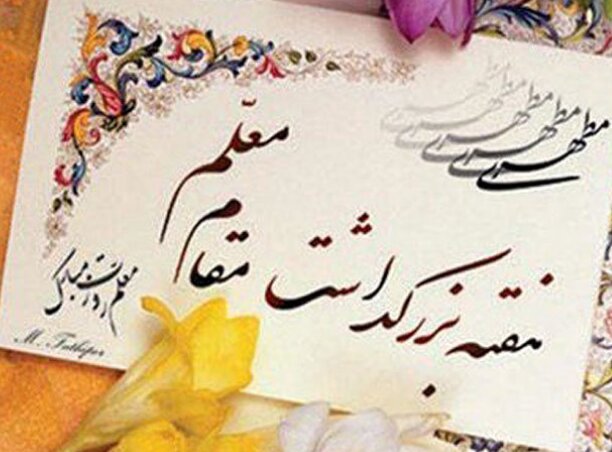 مطهری
مطهری
مطهری
مطهری
مطهری
هفته بزرگداشت
مقام
معلّم
معلم روزت مبارک
M. Fathipor